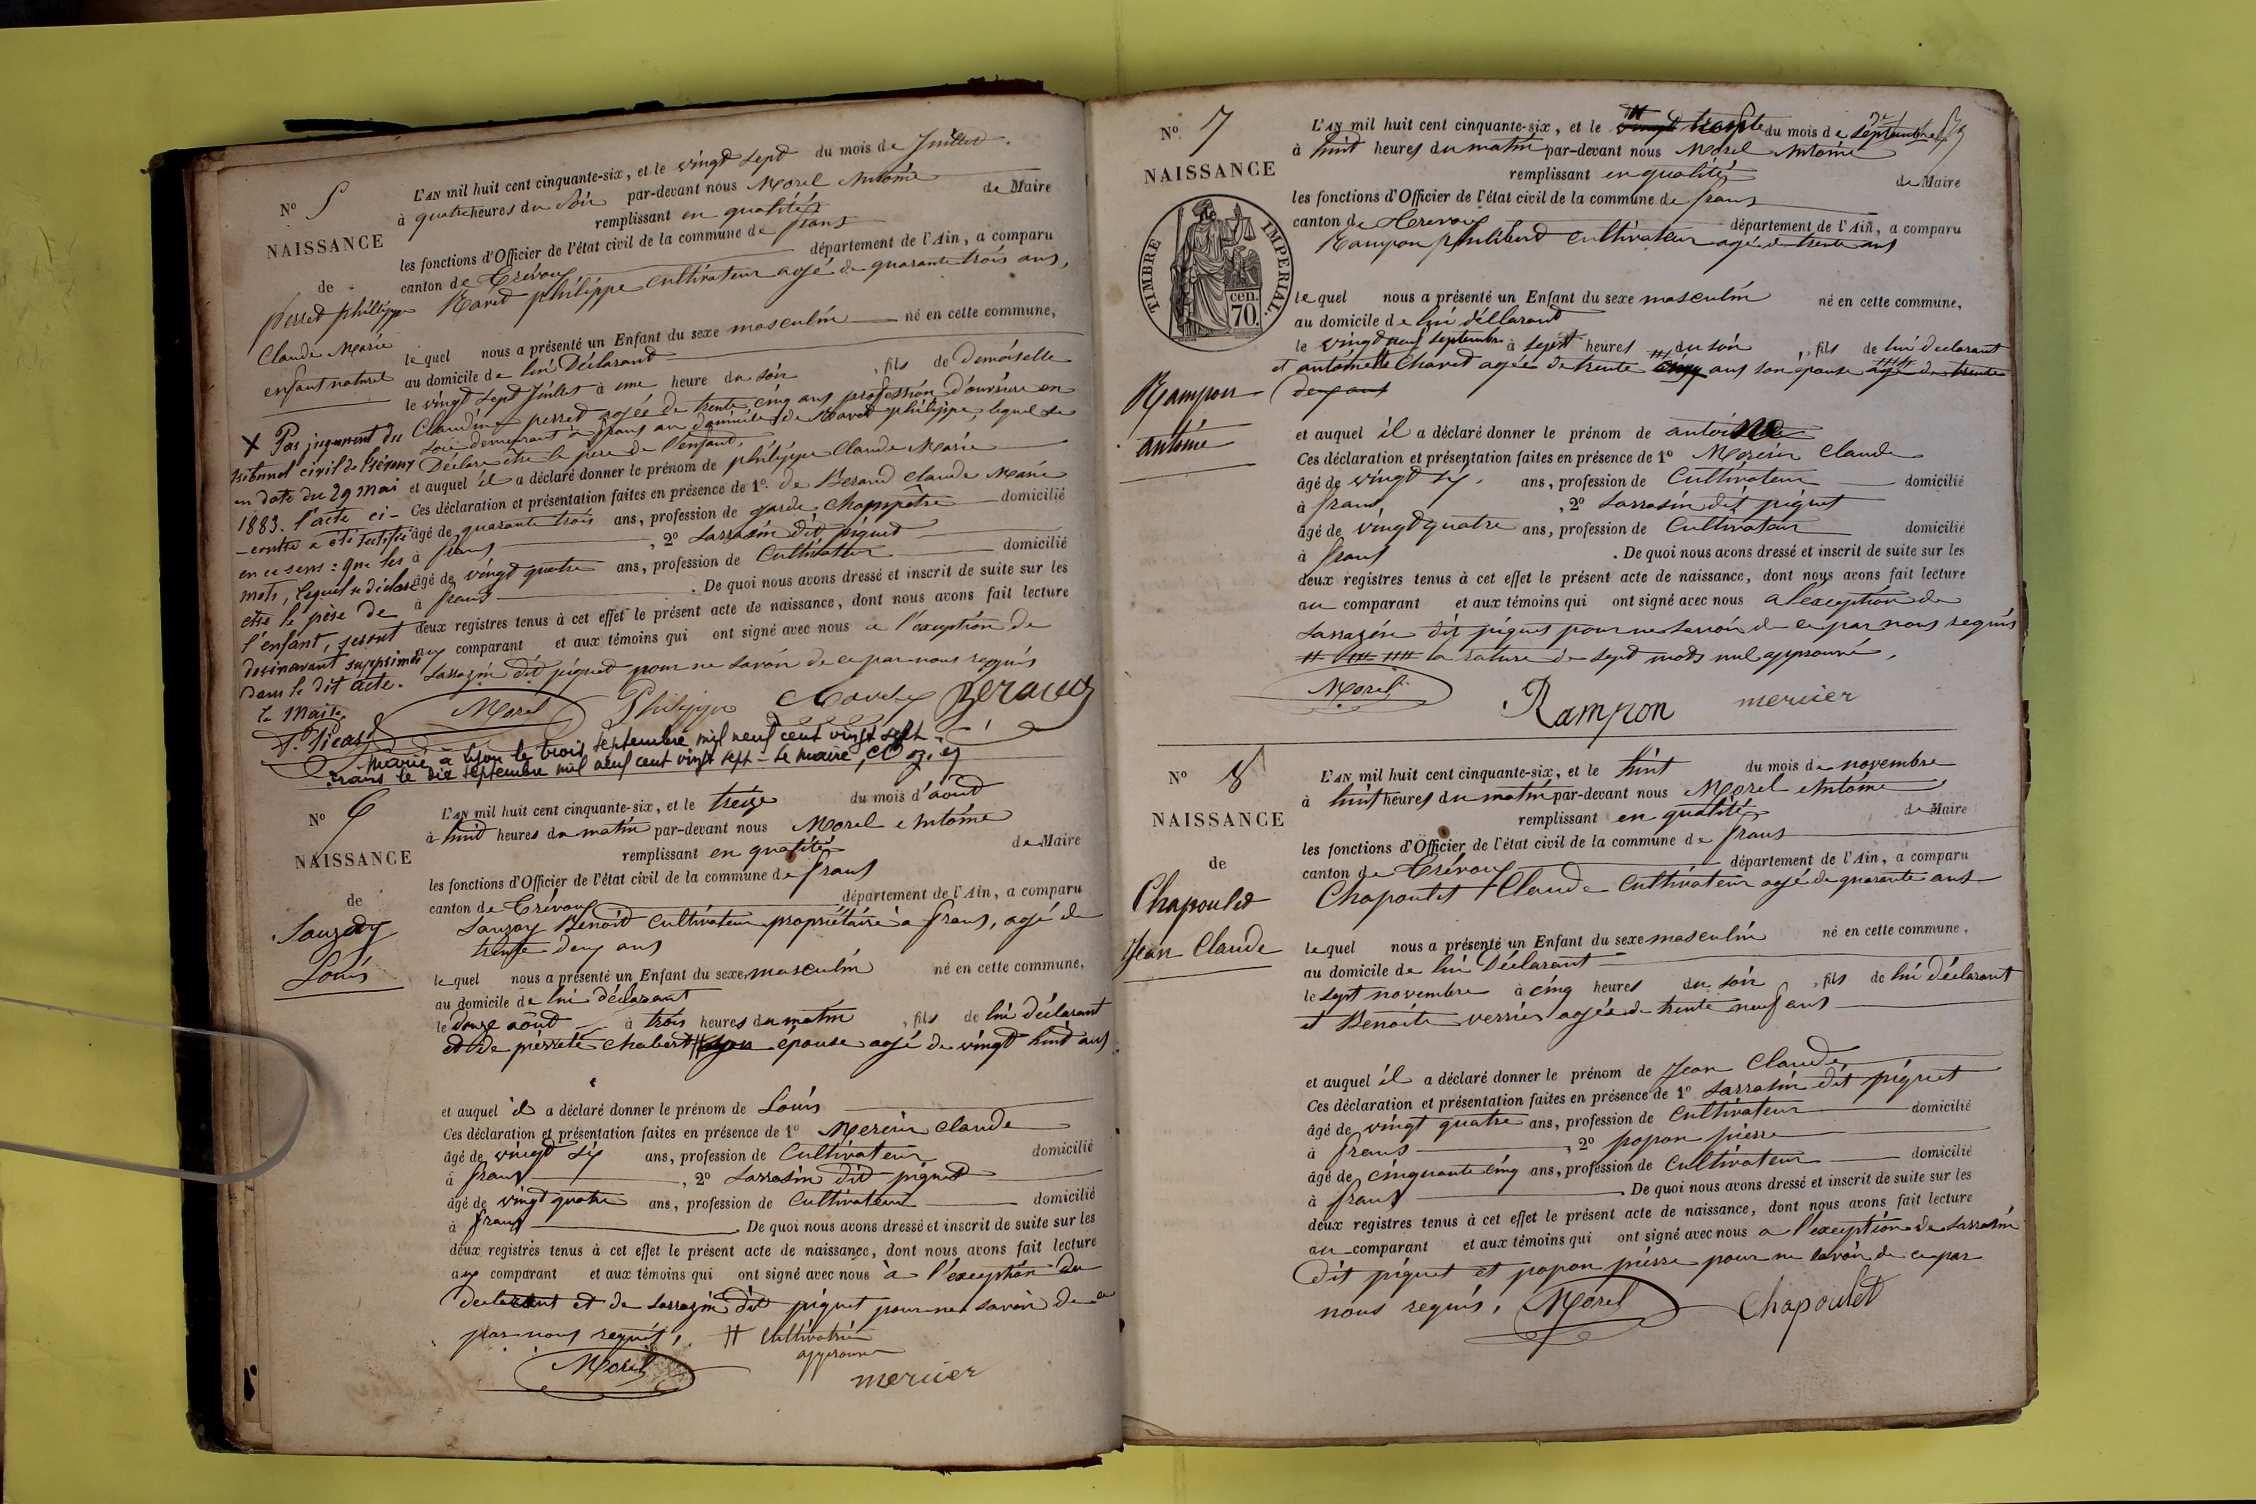 N° 5
NAISSANCE
de
perret philippe
Claude Marie
enfant naturel
L'AN mil huit cent cinquante-six, et le vingt sept du mois de Juillet
à quatre heures du Soir par-devant nous Morel Antoine
remplissant en qualité de Maire
les fonctions d'Officier de l'état civil de la commune de frans
canton de Trévoux département de l'Ain, a comparu
Ravet philippe cultivateur agé de quarante trois ans,
le quel nous a présenté un Enfant du sexe masculin né en cette commune,
au domicile de lui Déclarant
le vingt sept Juillet à une heure du soir, fils de demoiselle
Claudine perret agée de trente cinq ans profession d'ouvrière en
soie demeurant à frans au domicile de Ravet philippe, lequel se
Déclare être le père de l'enfant.
et auquel il a déclaré donner le prénom de philippe Claude Marie
Ces déclaration et présentation faites en présence de 1° de Beraud Claude Marie
âgé de quarante trois ans, profession de garde champêtre domicilié
à frans, 2° Sarrasin dit piquet
âgé de vingt quatre ans, profession de Cultivateur domicilié
à frans. De quoi nous avons dressé et inscrit de suite sur les
deux registres tenus à cet effet le présent acte de naissance, dont nous avons fait lecture
aux comparant et aux témoins qui ont signé avec nous a l'exception de
Sarrazin dit piquet pour ne savoir de ce par nous requis
Morel Philippe Ravet Beraud
X Par jugement du
tribunal civil de Trévoux
en date du 29 Mai
1883. l'acte ci-
-contre a été rectifié
en ce sens : que les
mots, lequel se déclare
être le père de
l'enfant, seront
désormais supprimés
dans le dit acte.
Le Maire
Marié à Lyon le trois septembre mil neuf cent vingt sept.
Frans le dix septembre mil neuf cent vingt sept - Le maire,
N° 6
NAISSANCE
de
Sauzay
Louis
L'AN mil huit cent cinquante-six, et le treize du mois d'aout
à huit heures du matin par-devant nous Morel Antoine
remplissant en qualité de Maire
les fonctions d'Officier de l'état civil de la commune de frans
canton de Trévoux département de l'Ain, a comparu
Sauzay Benoit Cultivateur propriétaire à frans, agé de
trente deux ans
le quel nous a présenté un Enfant du sexe masculin né en cette commune,
au domicile de lui déclarant
le douze aout à trois heures du matin, fils de lui déclarant
et de pierrette Chabert # son epouse agé de vingt huit ans
et auquel il a déclaré donner le prénom de Louis
Ces déclaration et présentation faites en présence de 1° Mercier Claude
âgé de vingt six ans, profession de Cultivateur domicilié
à frans, 2° Sarrasin dit piquet
âgé de vingt quatre ans, profession de Cultivateur domicilié
à frans. De quoi nous avons dressé et inscrit de suite sur les
deux registres tenus à cet effet le présent acte de naissance, dont nous avons fait lecture
aux comparant et aux témoins qui ont signé avec nous à l'exception du
declarant et de Sarrazin dit piquet pour ne savoir de ce
par nous requis, # Cultivatrice
approuvé
Morel mercier
N° 7
NAISSANCE
TIMBRE IMPERIAL.
cen. 70.
Rampon
antoine
L'AN mil huit cent cinquante-six, et le trente du mois de septembre
à huit heures du matin par-devant nous Morel Antoine
remplissant en qualité de Maire
les fonctions d'Officier de l'état civil de la commune de frans
canton de Trevoux département de l'Ain, a comparu
Rampon philibert Cultivateur agé de trente ans
le quel nous a présenté un Enfant du sexe masculin né en cette commune,
au domicile de lui déllarant
le vingt neuf septembre à sept heures du soir, fils de lui declarant
et antoinette Chavet agée de trente cinq ans son epouse agé de trente
deux ans
et auquel il a déclaré donner le prénom de antoine
Ces déclaration et présentation faites en présence de 1° Mercier Claude
âgé de vingt six ans, profession de Cultivateur domicilié
à frans, 2° Sarrasin dit piquet
âgé de vingt quatre ans, profession de Cultivateur domicilié
à frans. De quoi nous avons dressé et inscrit de suite sur les
deux registres tenus à cet effet le présent acte de naissance, dont nous avons fait lecture
au comparant et aux témoins qui ont signé avec nous a l'exception de
Sarrazin dit piquet pour ne savoir de ce par nous requis
la rature de sept mots nul approuvé,
Morel Rampon mercier
N° 8
NAISSANCE
de
Chapoulet
Jean Claude
L'AN mil huit cent cinquante-six, et le huit du mois de novembre
à huit heures du matin par-devant nous Morel Antoine
remplissant en qualité de Maire
les fonctions d'Officier de l'état civil de la commune de frans
canton de Trévoux département de l'Ain, a comparu
Chapoulet Claude Cultivateur agé de quarante ans
le quel nous a présenté un Enfant du sexe masculin né en cette commune,
au domicile de lui Déclarant
le sept novembre à cinq heures du soir, fils de lui déclarant
et Benoite verrier agée de trente neuf ans
et auquel il a déclaré donner le prénom de Jean Claude
Ces déclaration et présentation faites en présence de 1° Sarrasin dit piquet
âgé de vingt quatre ans, profession de Cultivateur domicilié
à frans, 2° popon pierre
âgé de cinquante cinq ans, profession de Cultivateur domicilié
à frans. De quoi nous avons dressé et inscrit de suite sur les
deux registres tenus à cet effet le présent acte de naissance, dont nous avons fait lecture
au comparant et aux témoins qui ont signé avec nous a l'exception de Sarrasin
Dit piquet et popon pierre pour ne savoir de ce par
nous requis, Morel Chapoulet